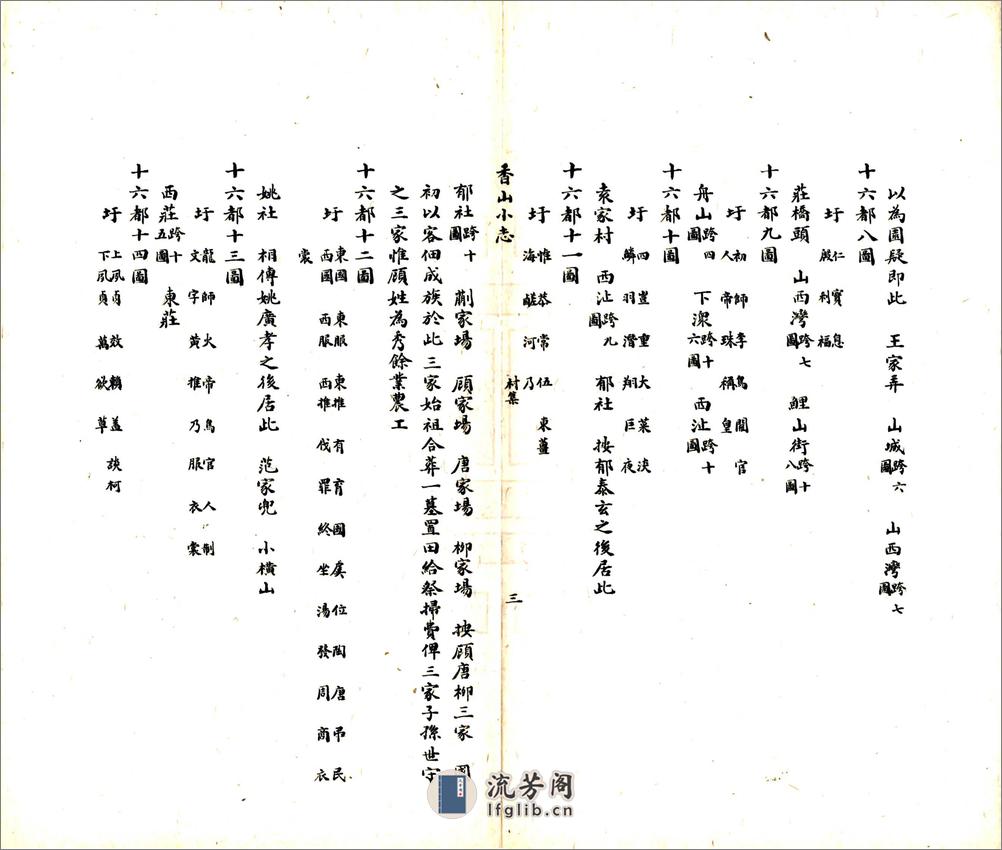 以為園疑即此　王家弄　山城跨六圖　山西灣跨七圖
十六都八圖
圩　仁　寶　息
殷　利　福
莊橋頭　山西灣跨七圖　鯉山街跨十八圖
十六都九圖
圩　初　師　李　鳥　闕　官
人　帝　珠　稱　皇
舟山跨四圖　下濴跨十六圖　西沚跨十圖
十六都十圖
圩　四　豈　重　大　菜　淡
鱗　羽　潛　翔　巨　夜
袁家村　西沚跨九圖　郁社　按郁泰玄之後居此
十六都十一圖
圩　惟　恭　常　伍　東　薑
海　鹺　河　乃
香山小志　村集　三
郁社跨十圖　蒯家場　顧家場　唐家場　柳家場　按顧唐柳三家　國
初以客佃成族於此三家始祖合葬一墓置田給祭掃費俾三家子孫世守
之三家惟顧姓為秀餘業農工
十六都十二圖
圩　東國　東服　東推　有　育　國　虞　位　陶　唐　吊　民
西國　西服　西推　伐　罪　終　坐　湯　發　周　商　衣
裳
姚社　相傳姚廣孝之後居此　范家兜　小橫山
十六都十三圖
圩　龍　師　火　帝　鳥　官　人　制
文　字　黃　推　乃　服　衣　裳
西莊跨十五圖　東莊
十六都十四圖
圩　上夙貞　效　賴　蓋　談　柯
下夙貞　萬　欲　草
流芳阁
lfglib.cn